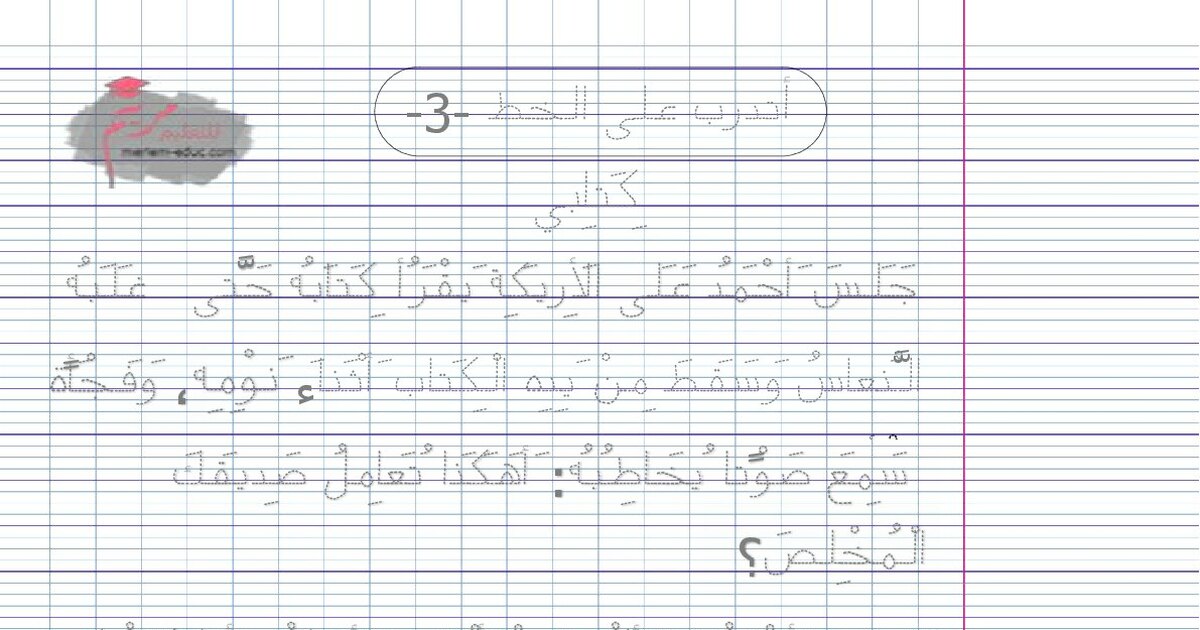 أتدرب على الخط -3-
مريم للتعليم
meriemi-educ.com
كِتَابِي
جَلَسَ أَحْمَدُ عَلَى الْأَرِيكَةِ يَقْرَأُ كِتَابَهُ حَتَّى غَلَبَهُ
النُّعَاسُ وَسَقَطَ مِنْ يَدِهِ الْكِتَاب أَثْنَاءَ نَوْمِهِ، وَفَجْأَةً
سَمِعَ صَوْتًا يُخَاطِبُهُ: أَهَكَذَا تُعَامِلُ صَدِيقَكَ
الْمُخْلِصَ؟